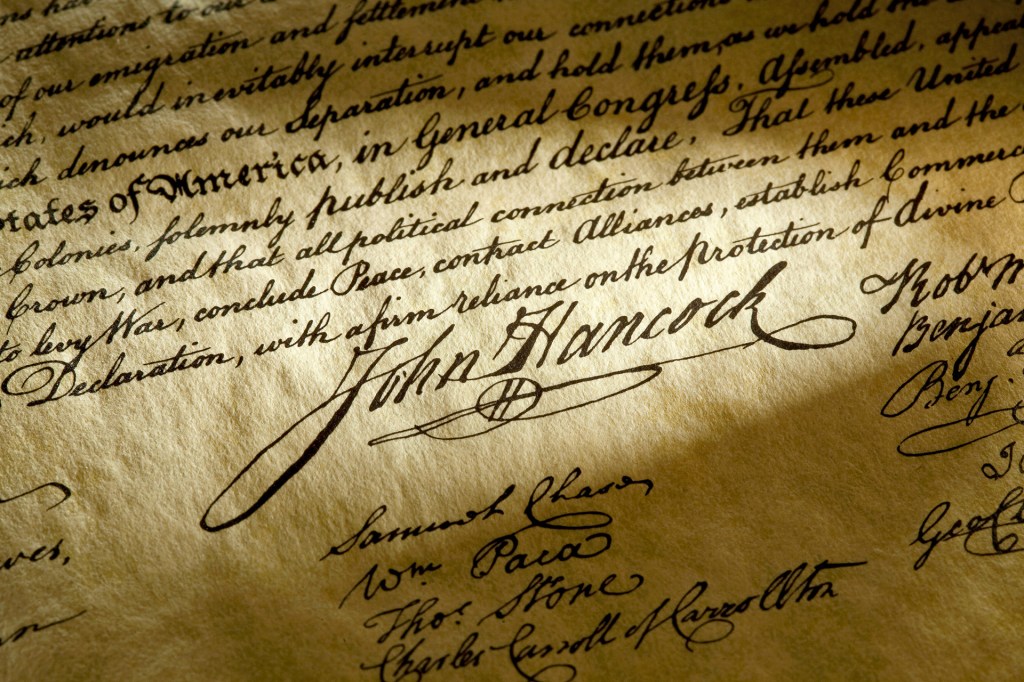 attentions to our
of our emigration and ſettlement
ch, would inevitably interrupt our connections
ich denounces our Separation, and hold them, as we hold the
States of America, in General Congreſs, Aſsembled, appea
Colonies, ſolemnly publish and declare, That these United
Crown, and that all political connection between them and the
to levy War, conclude Peace, contract Alliances, establish Commerc
Declaration, with a firm reliance on the protection of divine
John Hancock
Samuel Chase
Wm. Paca
Thos. Stone
Charles Carroll of Carrollton
Rob M
Benjam
Benj.
Geo Cl